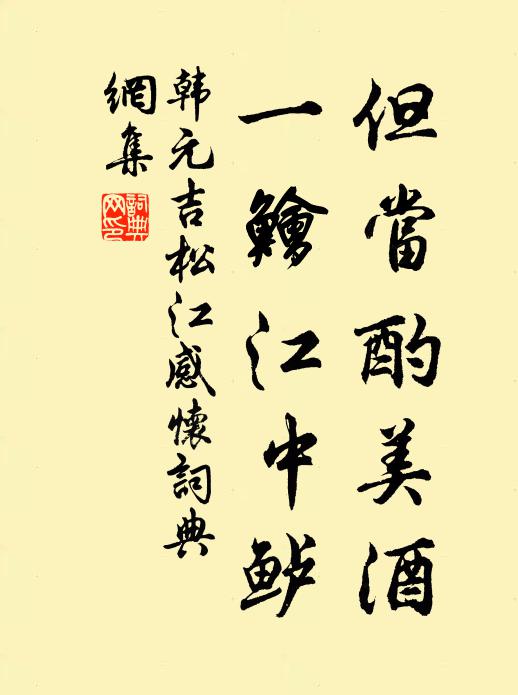 但當酌美酒
一鱠江中鲈
韩元吉松江感懷詞典
網集
詞典
网印